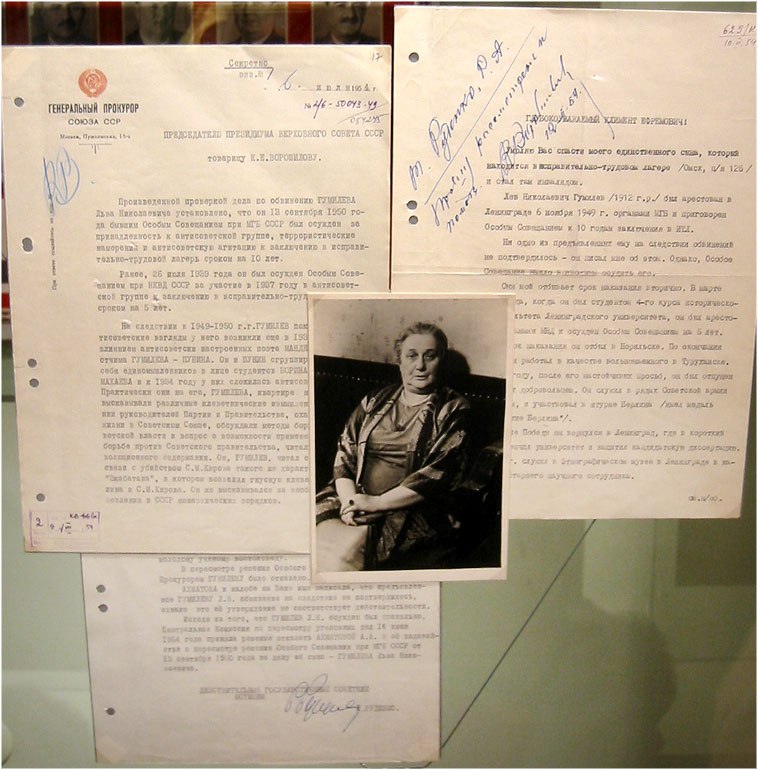 17
Секретно
экз. № 1
6 июля 1954 г.
№ 2/6-50043-49
ГЕНЕРАЛЬНЫЙ ПРОКУРОР
СОЮЗА ССР
Москва, Пушкинская, 15-а
ПРЕДСЕДАТЕЛЮ ПРЕЗИДИУМА ВЕРХОВНОГО СОВЕТА СССР
товарищу К.Е.ВОРОШИЛОВУ.
Произведенной проверкой дела по обвинению ГУМИЛЕВА
Льва Николаевича установлено, что он 13 сентября 1950 го-
да бывшим Особым Совещанием при МГБ СССР был осужден за
принадлежность к антисоветской группе, террористические
намерения и антисоветскую агитацию к заключению в исправи-
тельно-трудовой лагерь сроком на 10 лет.
Ранее, 26 июля 1939 года он был осужден Особым Сове-
щанием при НКВД СССР за участие в 1937 году в антисовет-
ской группе к заключению в исправительно-труд
сроком на 5 лет.
На следствии в 1949-1950 г.г. ГУМИЛЕВ пок
тисоветские взгляды у него возникли еще в 193
влиянием антисоветски настроенных поэта МАНДЕЛ
отчима ГУМИЛЕВА - ПУНИНА. Он и ПУНИН сгруппир
себя единомышленников в лице студентов БОРИНА
МАХАЕВА и к 1934 году у них сложилась антисов
Практически они на его, ГУМИЛЕВА, квартире
высказывали различные клеветнические измышлен
нии руководителей Партии и Правительства, оха
жизни в Советском Союзе, обсуждали методы борь
ветской власти и вопрос о возможности применен
борьбе против Советского правительства, читал
волюционного содержания. Он, ГУМИЛЕВ, читал с
связи с убийством С.М.Кирова такого же характ
"Экбатана", в котором возводил гнусную клевет
лина и С.М.Кирова. Он же высказывался за необх
новления в СССР монархических порядков.
2
625/И
10.II.54
т. Руденко, Р. А.
Прошу рассмотреть и
помочь
12/II-54.
ГЛУБОКОУВАЖАЕМЫЙ КЛИМЕНТ ЕФРЕМОВИЧ!
Умоляю Вас спасти моего единственного сына, который
находится в исправительно-трудовом лагере /Омск, п/я 125/
и стал там инвалидом.
Лев Николаевич Гумилев /1912 г.р./ был арестован в
Ленинграде 6 ноября 1949 г. органами МГБ и приговорен
Особым Совещанием к 10 годам заключения в ИТЛ.
Ни одно из предъявленных ему на следствии обвинений
не подтвердилось - он писал мне об этом. Однако, Особое
Совещание нашло возможным осудить его.
Сын мой отбывает срок наказания вторично. В марте
да, когда он был студентом 4-го курса историческо-
льтета Ленинградского университета, он был аресто-
анами МВД и осужден Особым Совещанием на 5 лет.
рок наказания он отбыл в Норильске. По окончании
н работал в качестве вольнонаемного в Туруханске.
году, после его настойчивых просьб, он был отпущен
т добровольцем. Он служил в рядах Советской армии
и, и участвовал в штурме Берлина /имел медаль
тие Берлина"/.
е Победы он вернулся в Ленинград, где в короткий
нчил университет и защитил кандидатскую диссертацию.
г. служил в Этнографическом музее в Ленинграде в ка-
старшего научного сотрудника.
См. н/об.
молодому ученому востоковеду.
В пересмотре решения Особого
Прокурором ГУМИЛЕВУ было отказано.
АХМАТОВА в жалобе на Ваше имя написала, что предъявлен-
ное ГУМИЛЕВУ Л.Н. обвинение на следствии не подтвердилось,
однако это её утверждение не соответствует действительности.
Исходя из того, что ГУМИЛЕВ Л.Н. осужден был правильно,
Центральная Комиссия по пересмотру уголовных дел 14 июня
1954 года приняла решение отказать АХМАТОВОЙ А.А. в её ходатай-
стве о пересмотре решения Особого Совещания при МГБ СССР от
13 сентября 1950 года по делу её сына - ГУМИЛЕВА Льва Нико-
лаевича.
ДЕЙСТВИТЕЛЬНЫЙ ГОСУДАРСТВЕННЫЙ СОВЕТНИК
ЮСТИЦИИ
Р.РУДЕНКО.